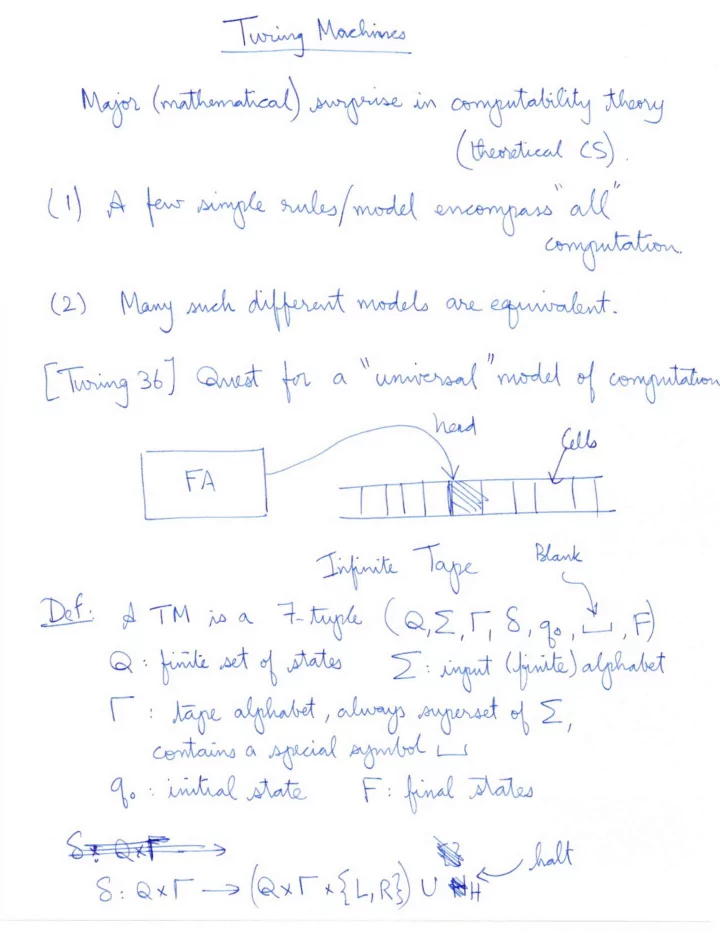 Turing Machines
Major (mathematical) surprise in computability theory
(theoretical CS).
(1) A few simple rules/model encompass "all"
computation.
(2) Many such different models are equivalent.
[Turing 36] Quest for a "universal" model of computation
head
Cells
FA
Infinite Tape
Blank
Def: A TM is a 7-tuple (Q, Σ, Γ, δ, q₀, ⊔, F)
Q : finite set of states Σ : input (finite) alphabet
Γ : tape alphabet, always superset of Σ,
contains a special symbol ⊔
q₀ : initial state F : final states
δ: Q×Γ →
halt
δ : Q×Γ → (Q×Γ×{L,R}) ∪ H